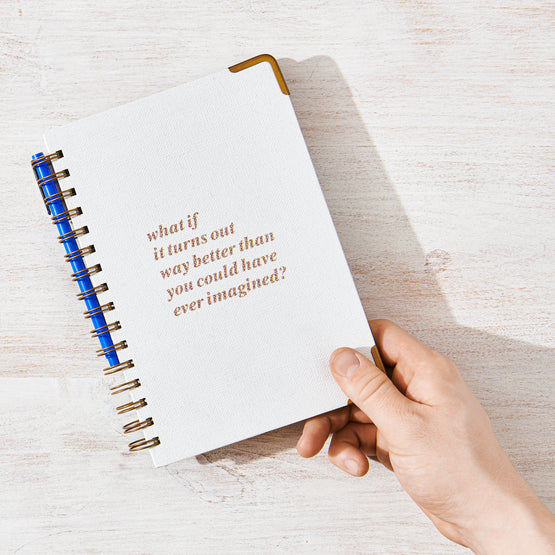 what if
it turns out
way better than
you could have
ever imagined?